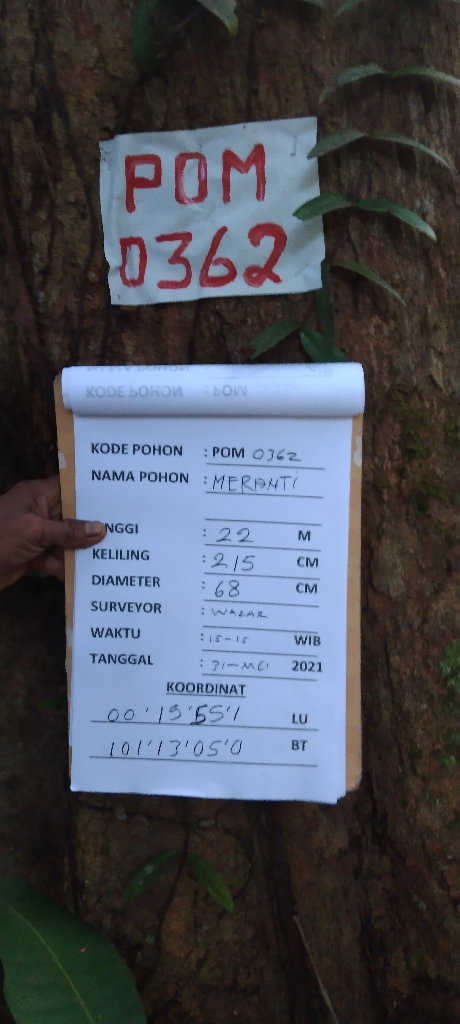 POM
0362
KODE POHON : POM 0362
NAMA POHON : MERANTI
NGGI : 22 M
KELILING : 215 CM
DIAMETER : 68 CM
SURVEYOR : WAZAR
WAKTU : 15-15 WIB
TANGGAL : 31-MEI 2021
KOORDINAT
00'19'55'1 LU
101'13'05'0 BT